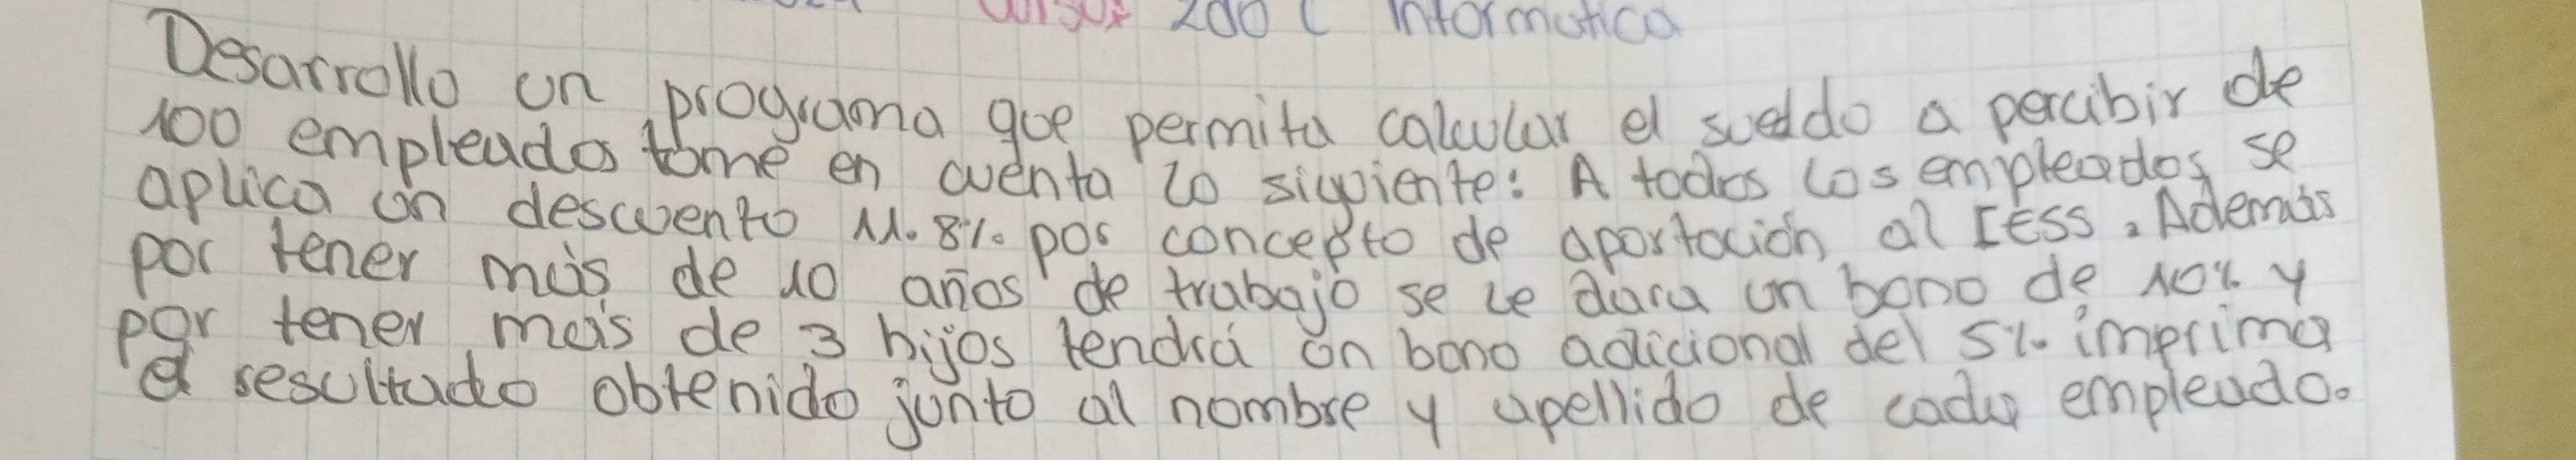 Curso: 2do C Informatica
Desarrollo un programa que permita calcular el sueldo a percibir de
100 empleados tome en cuenta lo siguiente: A todos los empleados se
aplica un descuento 11.8% por concepto de aportación al IESS. Además
por tener más de 10 años de trabajo se le dara un bono de 10% y
por tener más de 3 hijos tendrá un bono adicional del 5% imprima
el resultado obtenido junto al nombre y apellido de cada empleado.